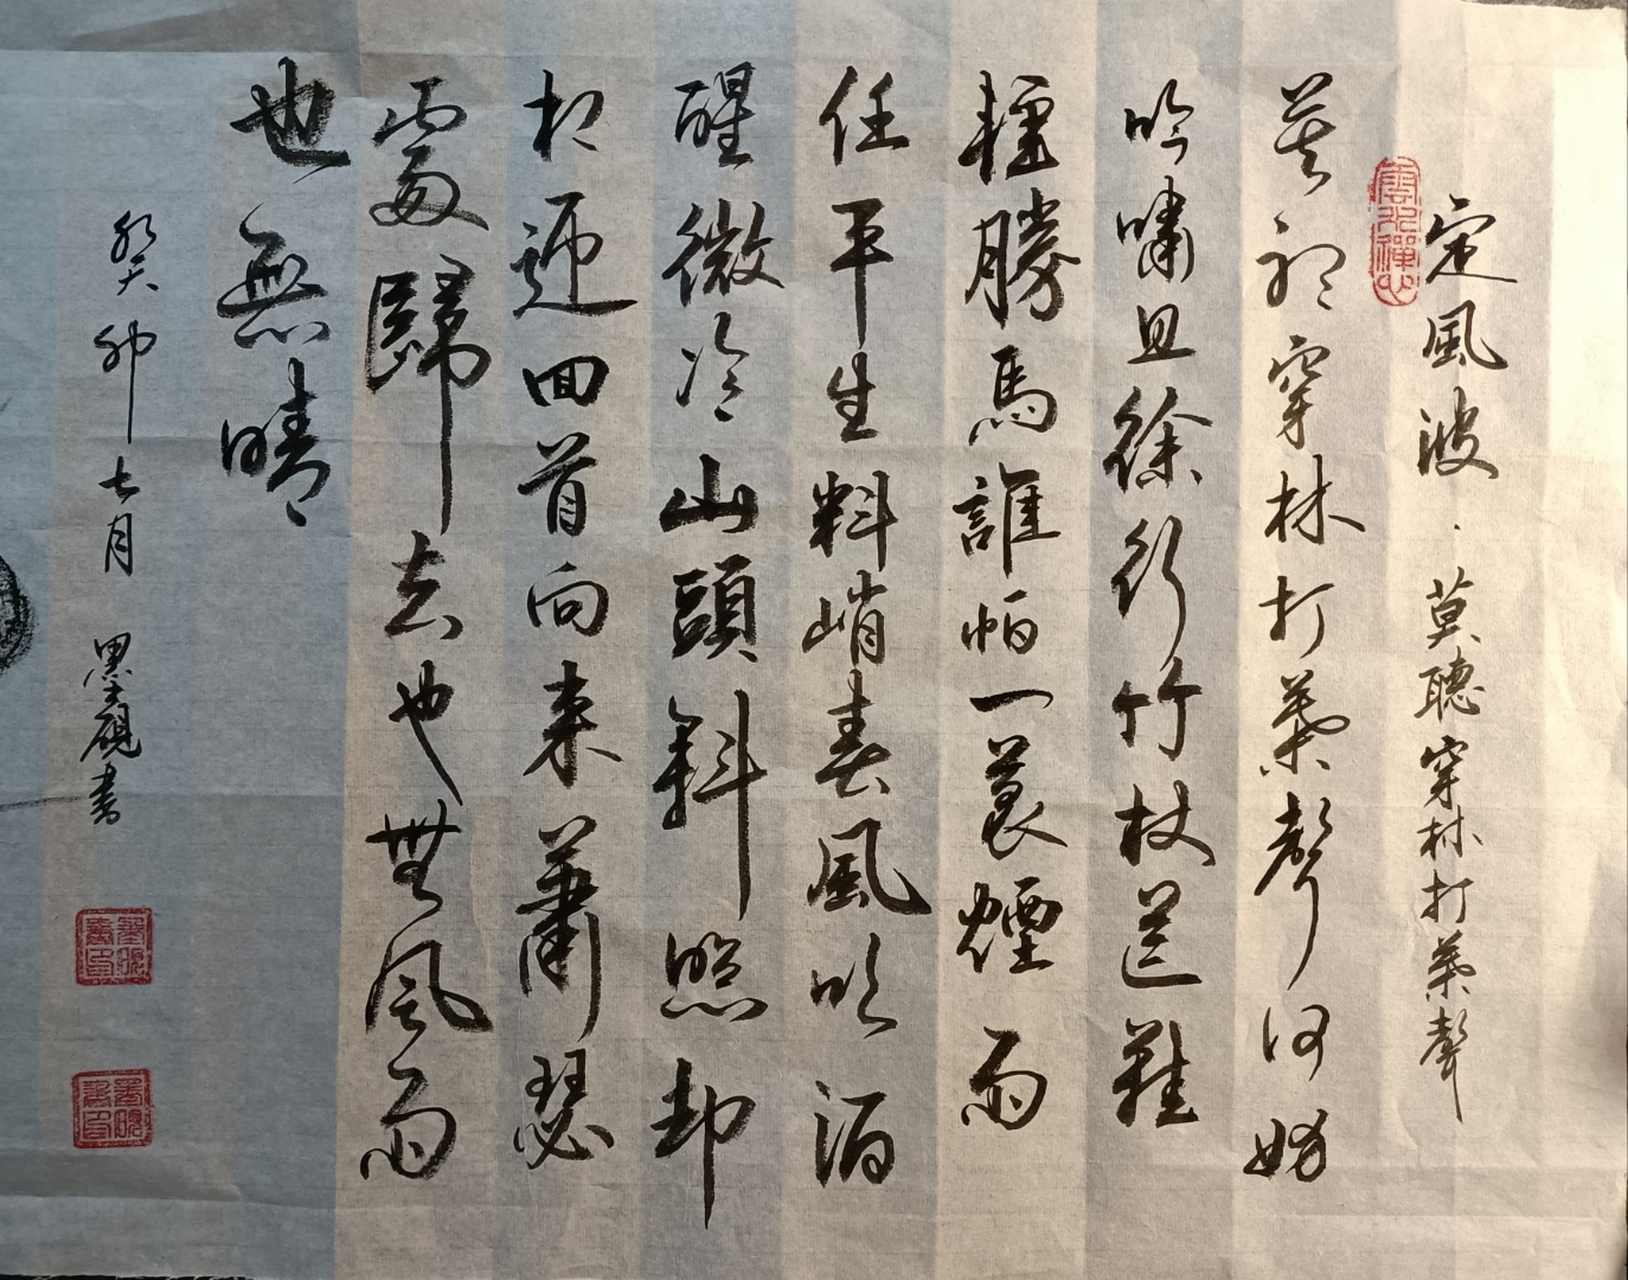 定風波·莫聽穿林打葉聲
雲水禪心
莫聽穿林打葉聲何妨
吟嘯且徐行竹杖芒鞋
輕勝馬誰怕一蓑煙雨
任平生料峭春風吹酒
醒微冷山頭斜照却
相迎回首向來蕭瑟
處歸去也無風雨
也無晴
癸卯七月 墨硯書